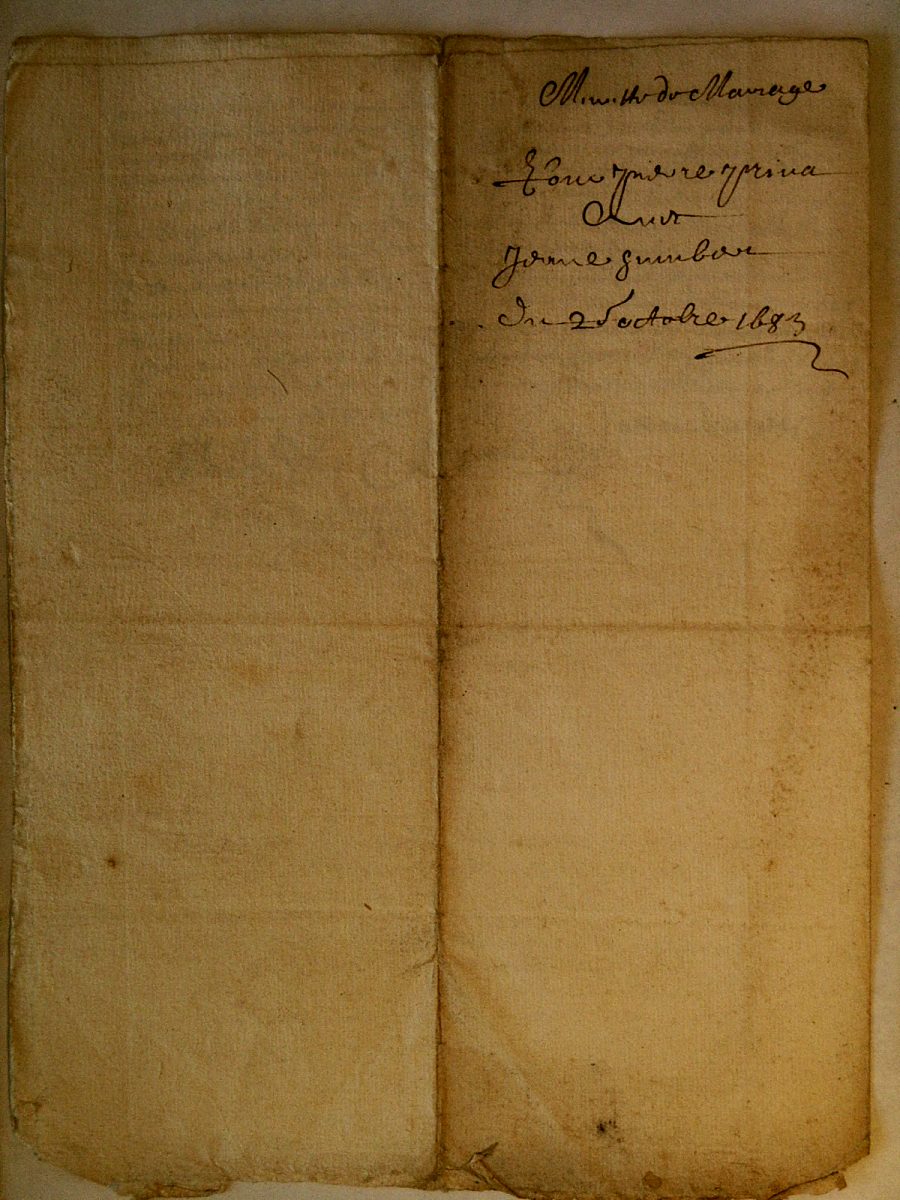 Minutte de Mariage
Pour Pierre Prina
Avec
Jenne
Du 25 octobre 1683